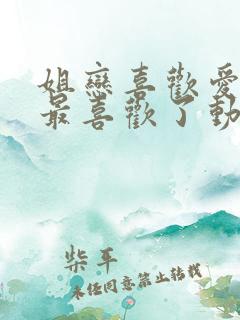 姐戀喜歡愛
最喜歡了動
柴平
未经同意禁止转载